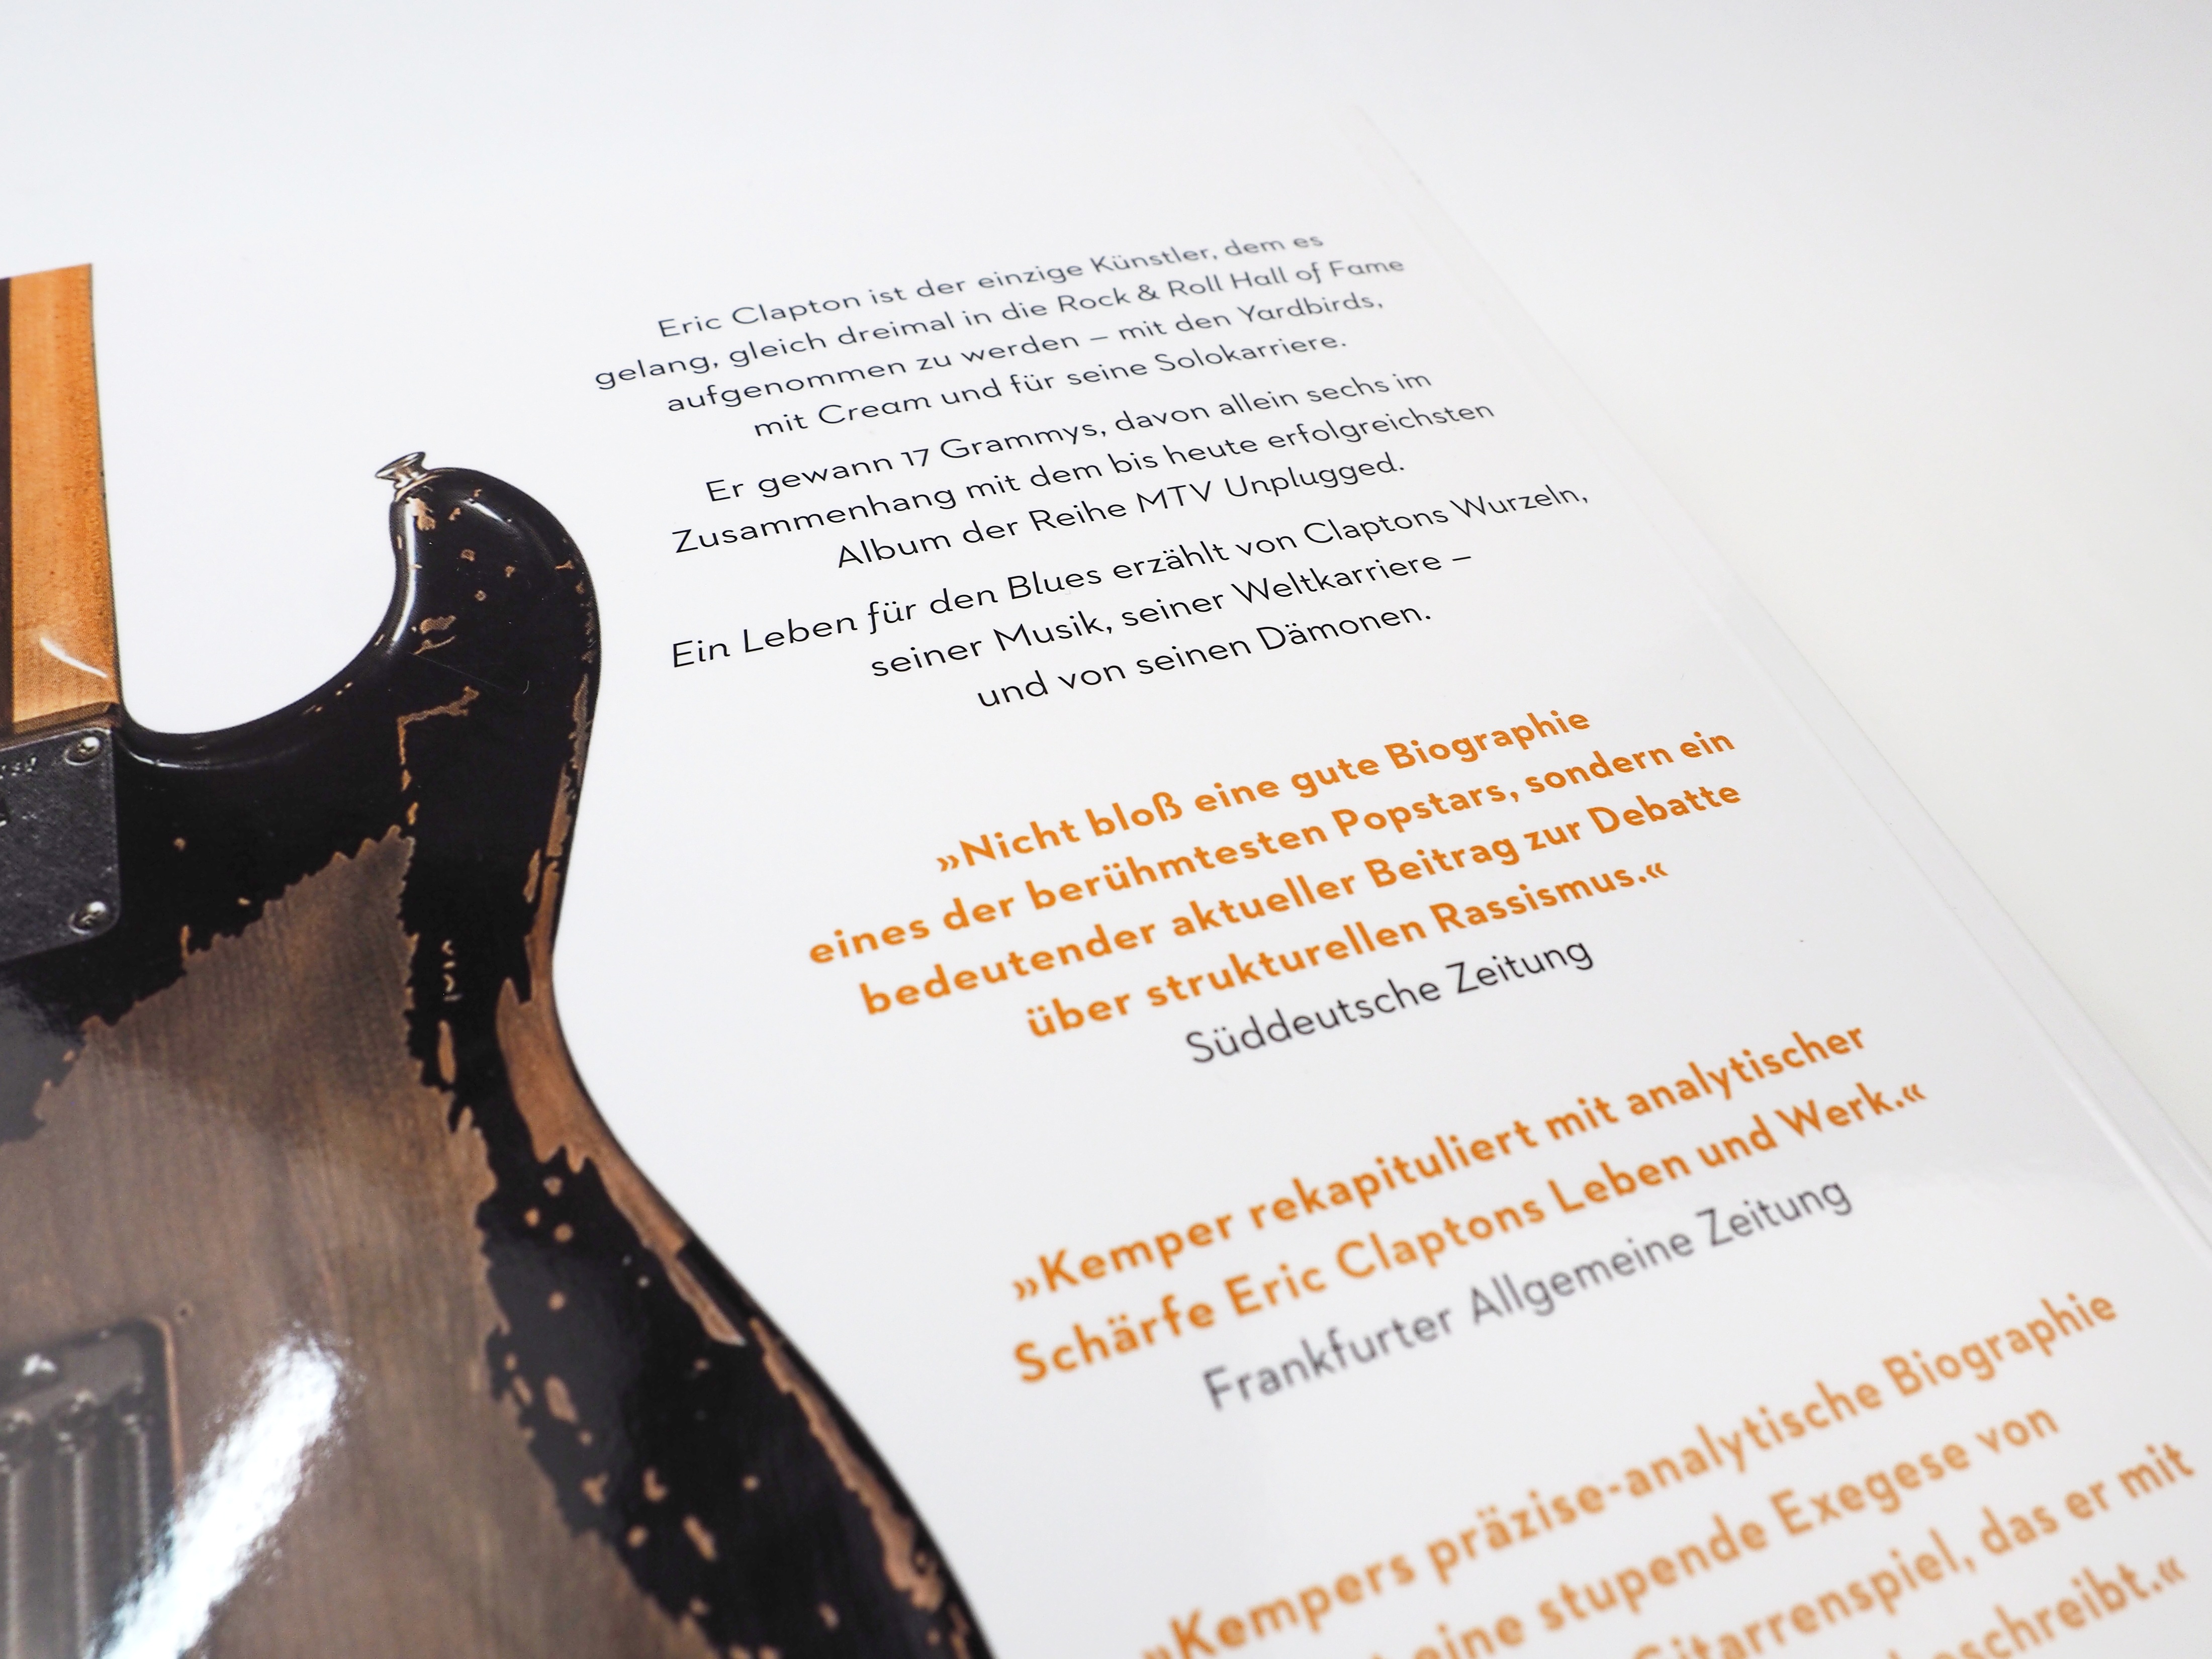 Eric Clapton ist der einzige Künstler, dem es
gelang, gleich dreimal in die Rock & Roll Hall of Fame
aufgenommen zu werden – mit den Yardbirds,
mit Cream und für seine Solokarriere.
Er gewann 17 Grammys, davon allein sechs im
Zusammenhang mit dem bis heute erfolgreichsten
Album der Reihe MTV Unplugged.
Ein Leben für den Blues erzählt von Claptons Wurzeln,
seiner Musik, seiner Weltkarriere –
und von seinen Dämonen.
»Nicht bloß eine gute Biographie
eines der berühmtesten Popstars, sondern ein
bedeutender aktueller Beitrag zur Debatte
über strukturellen Rassismus.«
Süddeutsche Zeitung
»Kemper rekapituliert mit analytischer
Schärfe Eric Claptons Leben und Werk.«
Frankfurter Allgemeine Zeitung
»Kempers präzise-analytische Biographie
eine stupende Exegese von
Gitarrenspiel, das er mit